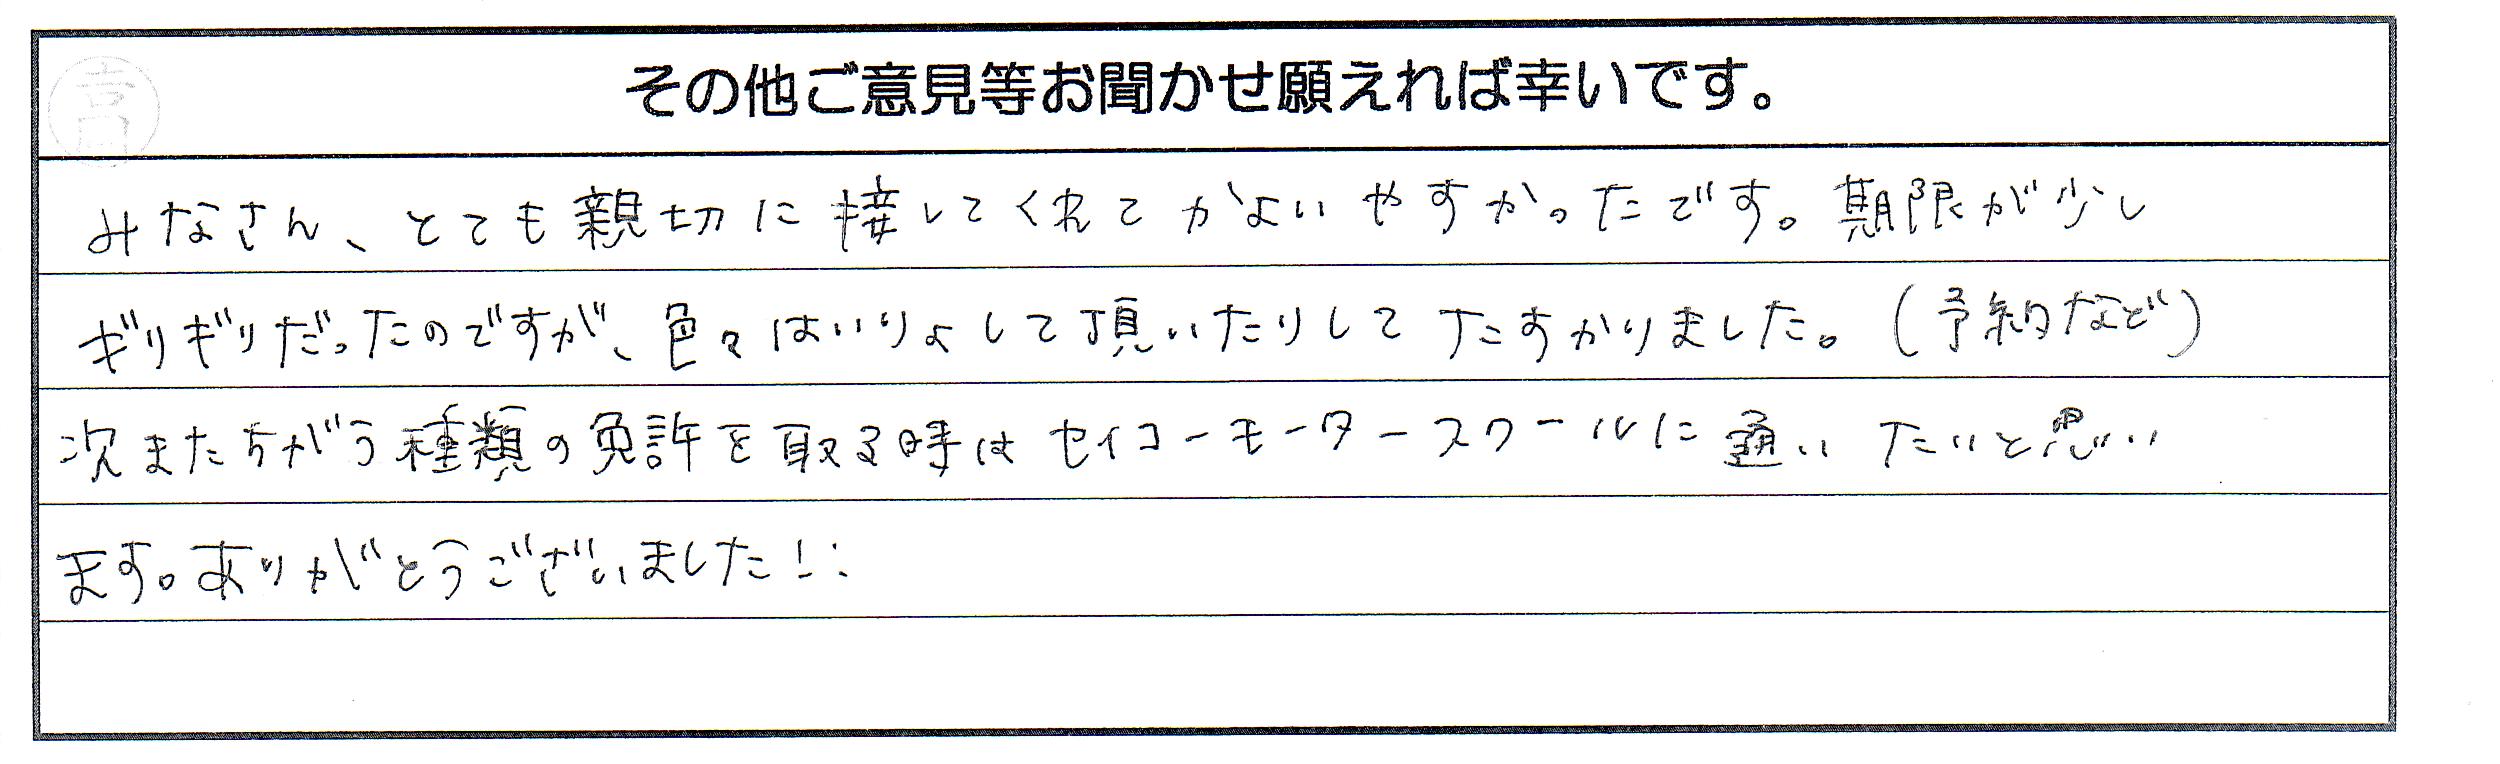 その他ご意見等お聞かせ願えれば幸いです。
みなさん、とても親切に接してくれてかよいやすかったです。期限が少し
ギリギリだったのですが、色々はいりょして頂いたりしてたすかりました。(予約など)
次またちがう種類の免許を取る時はセイコーモータースクールに通いたいと思い
ます。ありがとうございました!!